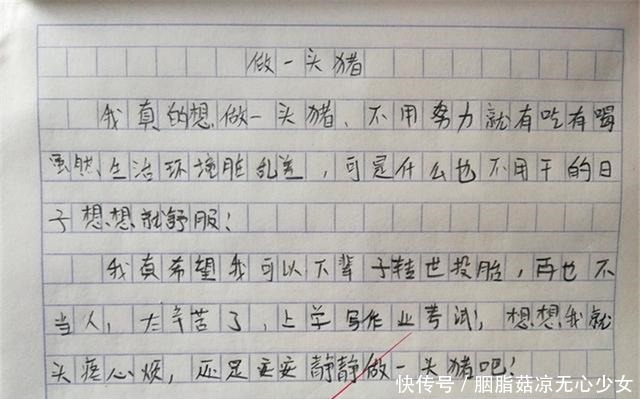 做一头猪
我真的想做一头猪、不用努力就有吃有喝
虽然生治环境脏乱差，可是什么也不用干的日
子想想就舒服！
我真希望我可以下辈子转世投胎，再也不
当人，太辛苦了，上学写作业考试，想想我就
头疼心烦，还是安安静静做一头猪吧！
快传号／胭脂菇凉无心少女